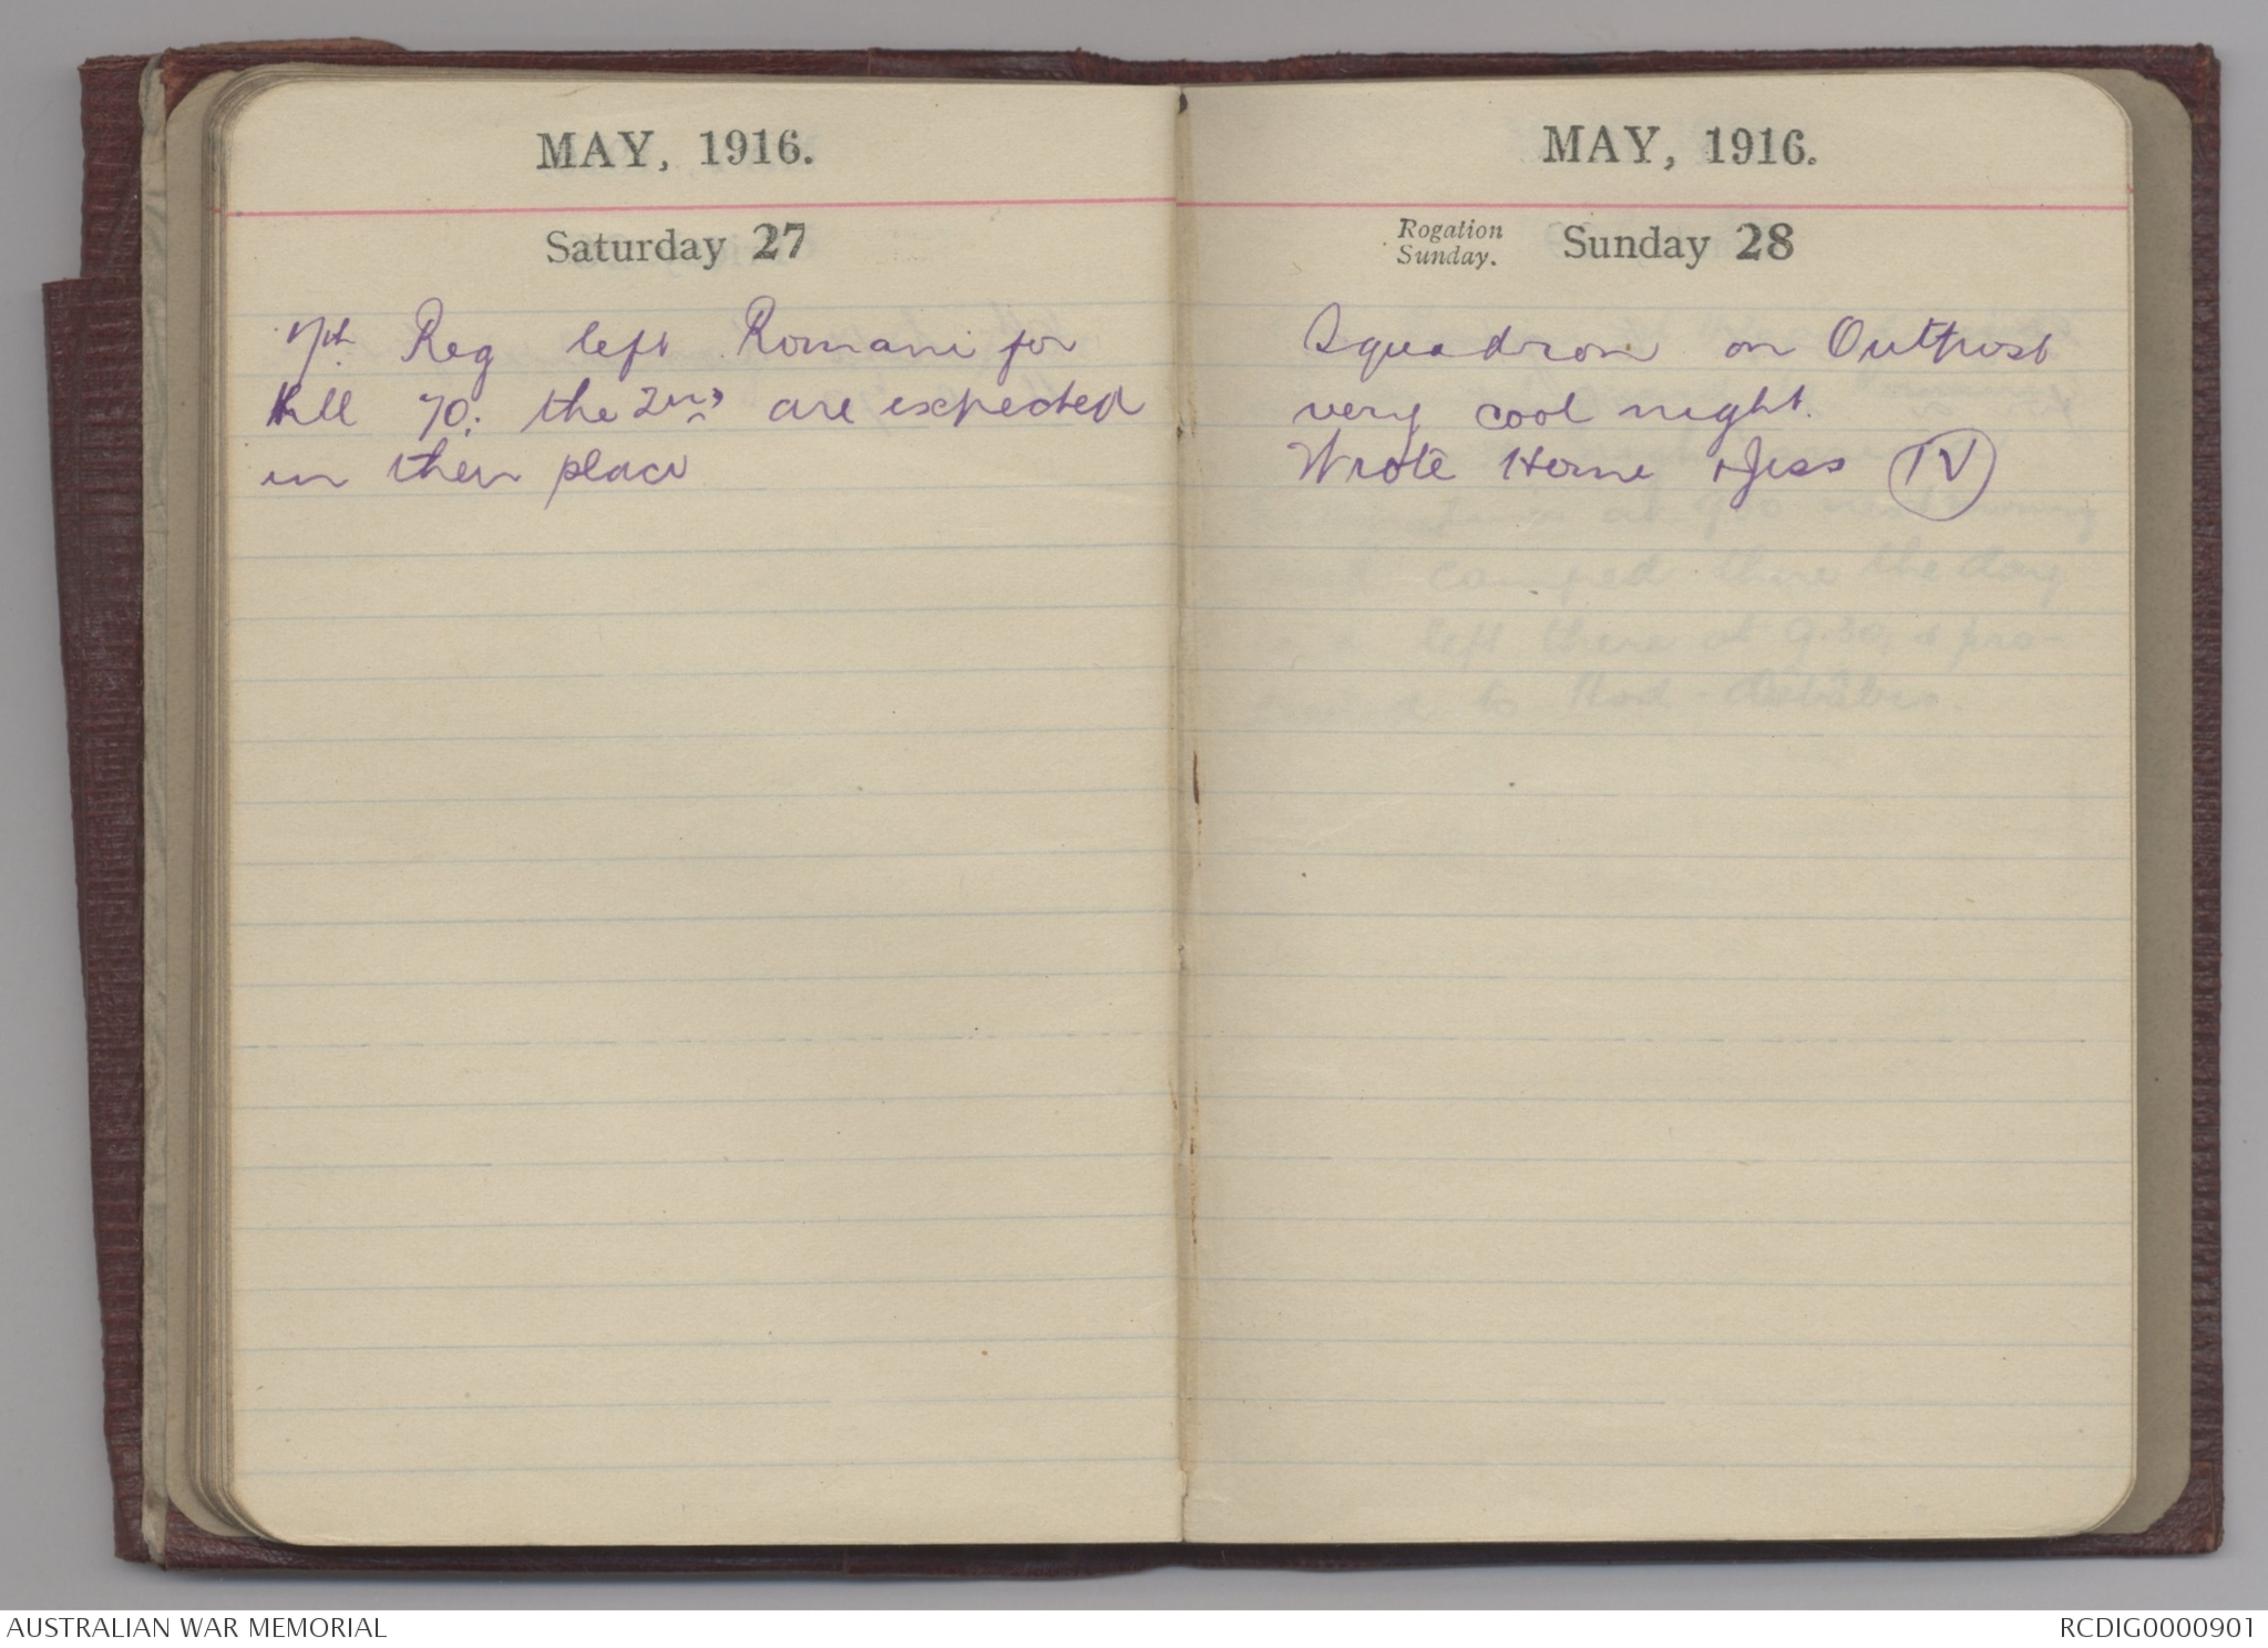 MAY, 1916.
Saturday 27
7th Reg left Romani for
Hill 70. the 2nd are expected
in their place
MAY, 1916.
Rogation Sunday. Sunday 28
Squadron on Outpost
very cool night.
Wrote Home & Jess IV
camped there the day
left there at 9.30, & pro-
AUSTRALIAN WAR MEMORIAL
RCDIG0000901